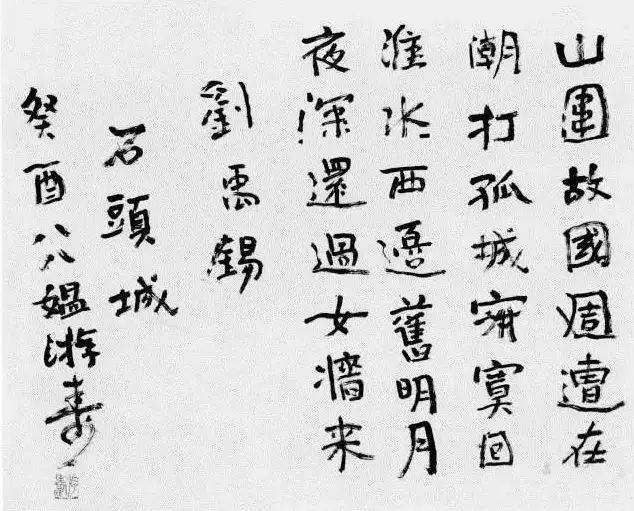 山圍故國週遭在
潮打孤城寂寞回
淮水西邊舊明月
夜深還過女牆来
劉禹錫
石頭城
癸酉八八媼游壽